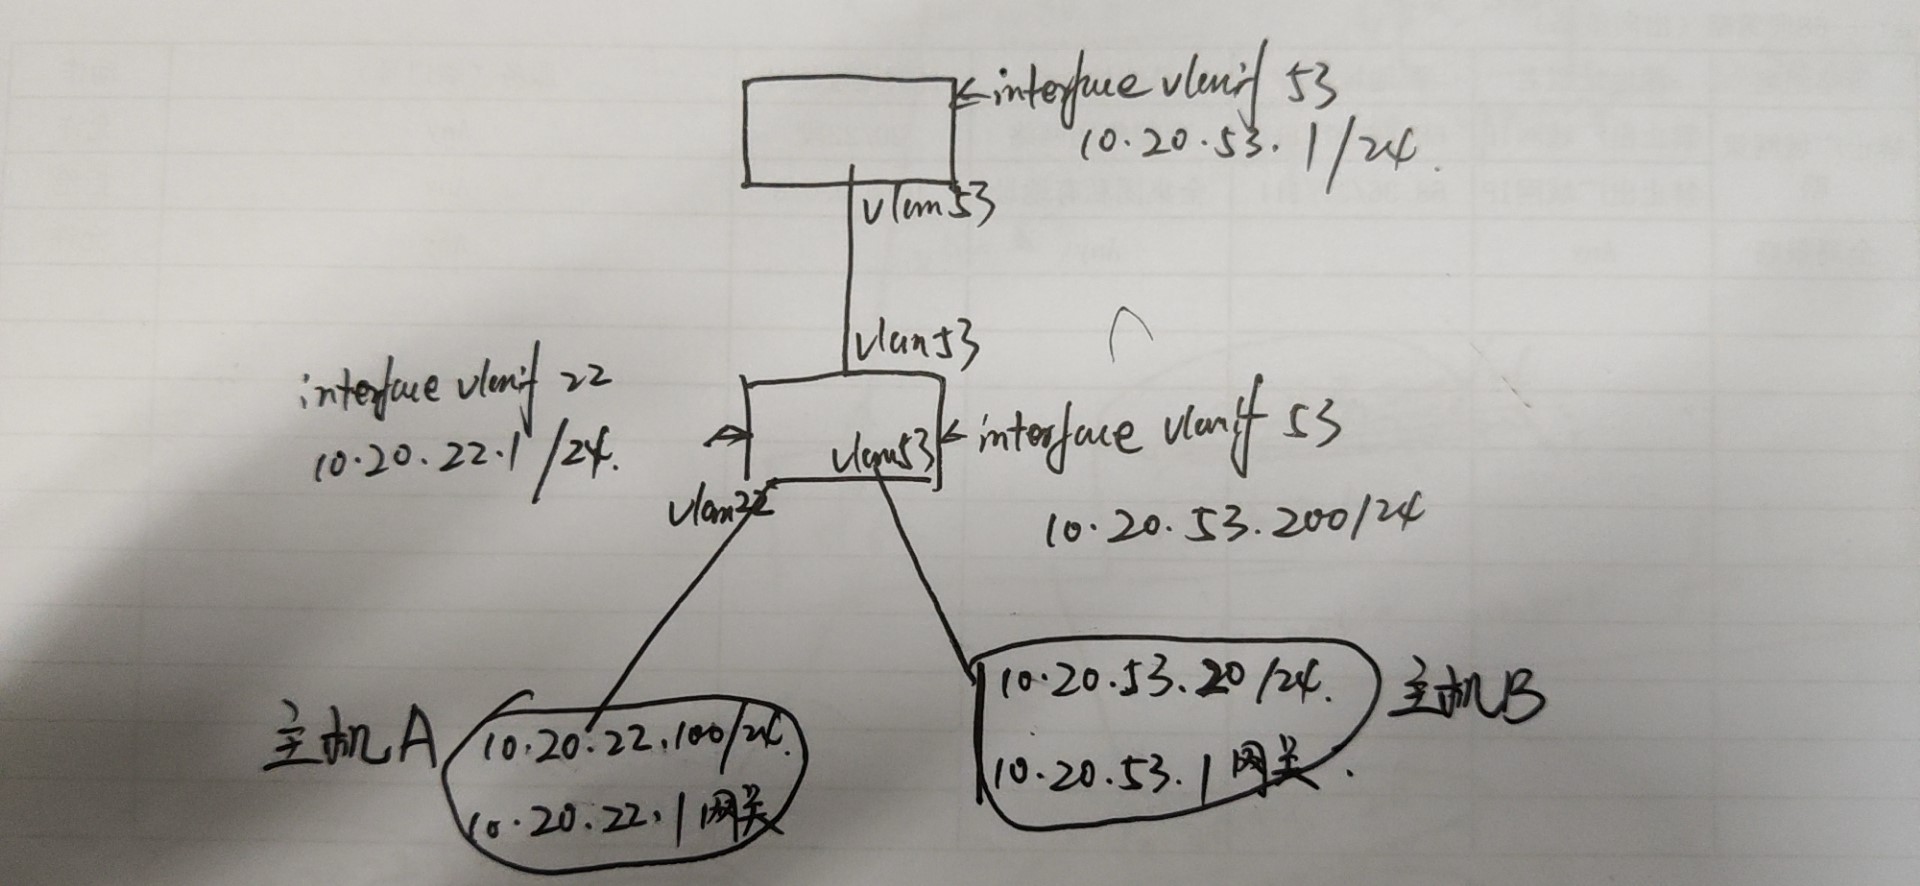 interface vlanif 53
10.20.53.1/24.
vlan53
vlan53
interface vlanif 22
10.20.22.1/24.
interface vlanif 53
10.20.53.200/24
vlan53
vlan22
主机A
10.20.22.100/24.
10.20.22.1网关
10.20.53.20/24.
10.20.53.1网关.
主机B